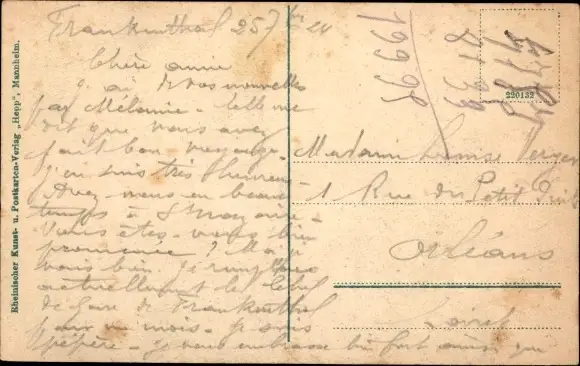 Frankenthal 25/7 24
Chère amie
J'ai vos nouvelles
par Mélanie - elle me
dit que vous avez
fait bon voyage
j'en suis très heureux
Avez-vous eu beau
temps à
Vous êtes-vous bien
promenée ? Moi je
vais bien. Je remplace
actuellement le chef
de Gare de Frankenthal
pour un mois - je suis
pépère - je vous embrasse bien fort ainsi que
Madame Louise
1 Rue du Petit Puits
Orléans
Loiret
220132
19998
Rheinischer Kunst- u. Postkarten-Verlag „Hepp", Mannheim.